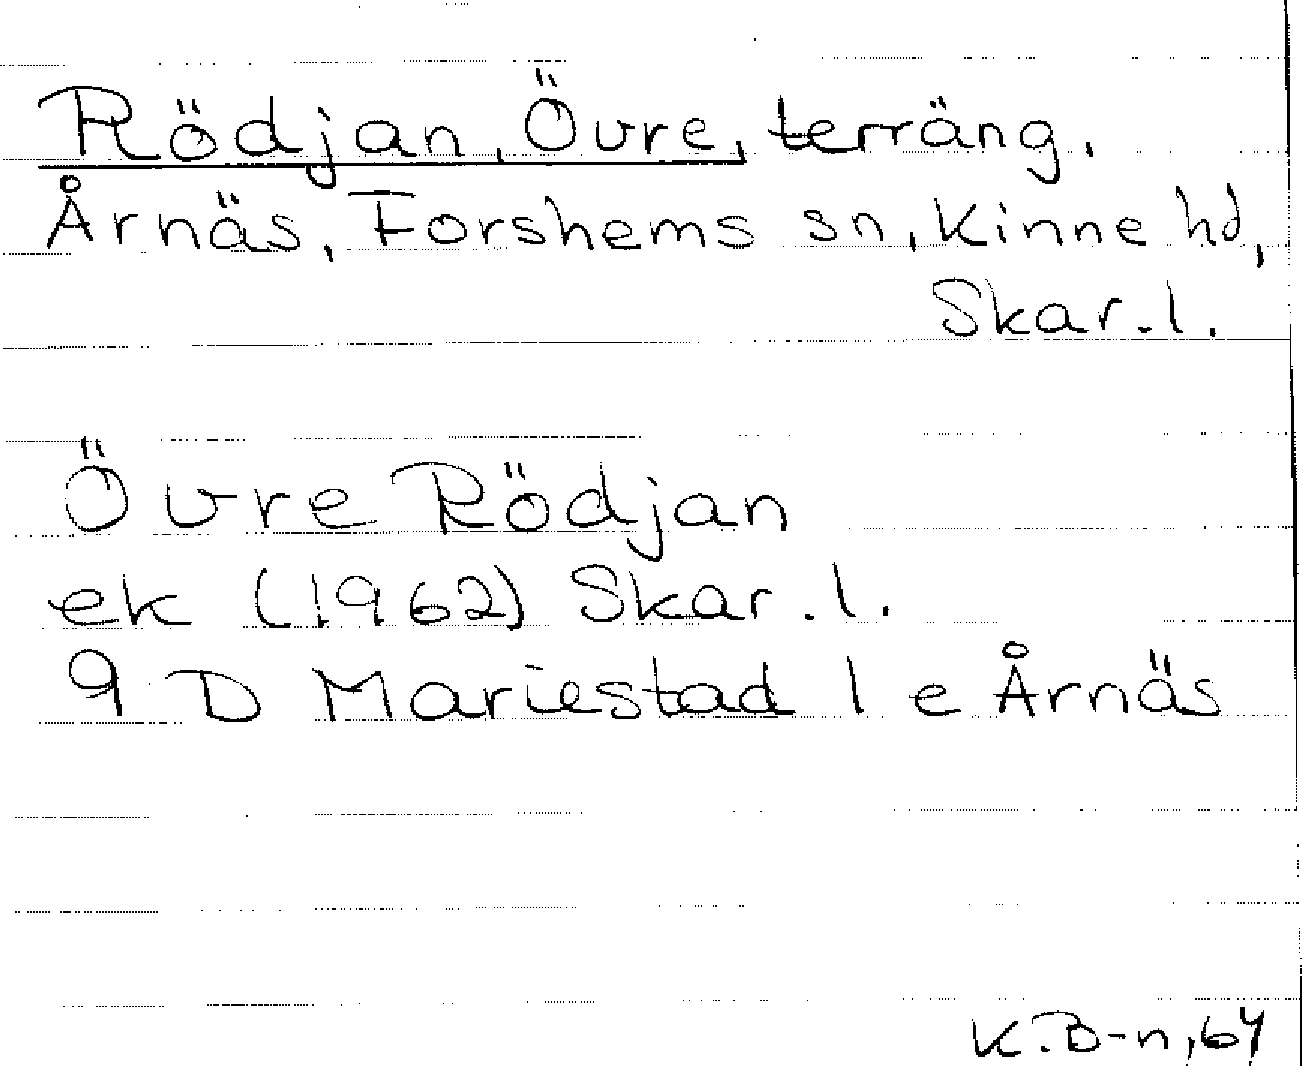 Rödjan, Övre, terräng.
Årnäs, Forshems sn, Kinne hd,
Skar. l.
Övre Rödjan
ek (1962) Skar. l.
9 D Mariestad 1 e Årnäs
K.B-n, 64